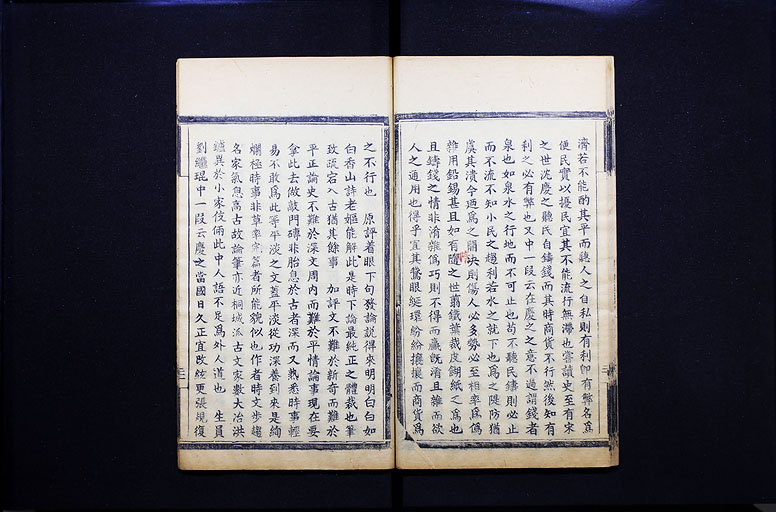 濟若不能酌其平而聽人之自私則有利卽有弊名爲
便民實以擾民宜其不能流行無滯也嘗讀史至有宋
之世沈慶之聽民自鑄錢而其時商貨不行然後知有
利之必有弊也又中一段云在慶之之意不過謂錢者
泉也如泉水之行地而不可止也苟不聽民鑄則必止
而不流不知小民之趨利若水之就下也爲之隄防猶
虞其潰今迺爲之開決則傷人必多勢必至相率爲僞
雜用鉛錫甚且如有隨之世翦鐵葉裁皮餬紙之爲也
且鑄錢之情非淆雜爲巧則不得而贏旣淆且雜而欲
人之通用也得乎宜其鵞眼綖環紛紛擾攘而商貨爲
之不行也 原評着眼下句發論說得來明明白白如
白香山詩老嫗能解此是時下論最純正之體裁也筆
致疏宕入古猶其餘事 加評文不難於新奇而難於
平正論史不難於深文周內而難於平情論事現在要
拿此去做敲門磚非胎息於古者深而又熟悉時事輕
易不敢爲此等平淡之文蓋平淡從功深養到來是絢
爛極時事非草率完篇者所能貌似也作者時文步趨
名家氣息高古故論筆亦近桐城派古文家數大冶洪
鑪異於小家伎倆此中人語不足爲外人道也 生員
劉繼琨中一段云慶之當國日久正宜改絃更張規復